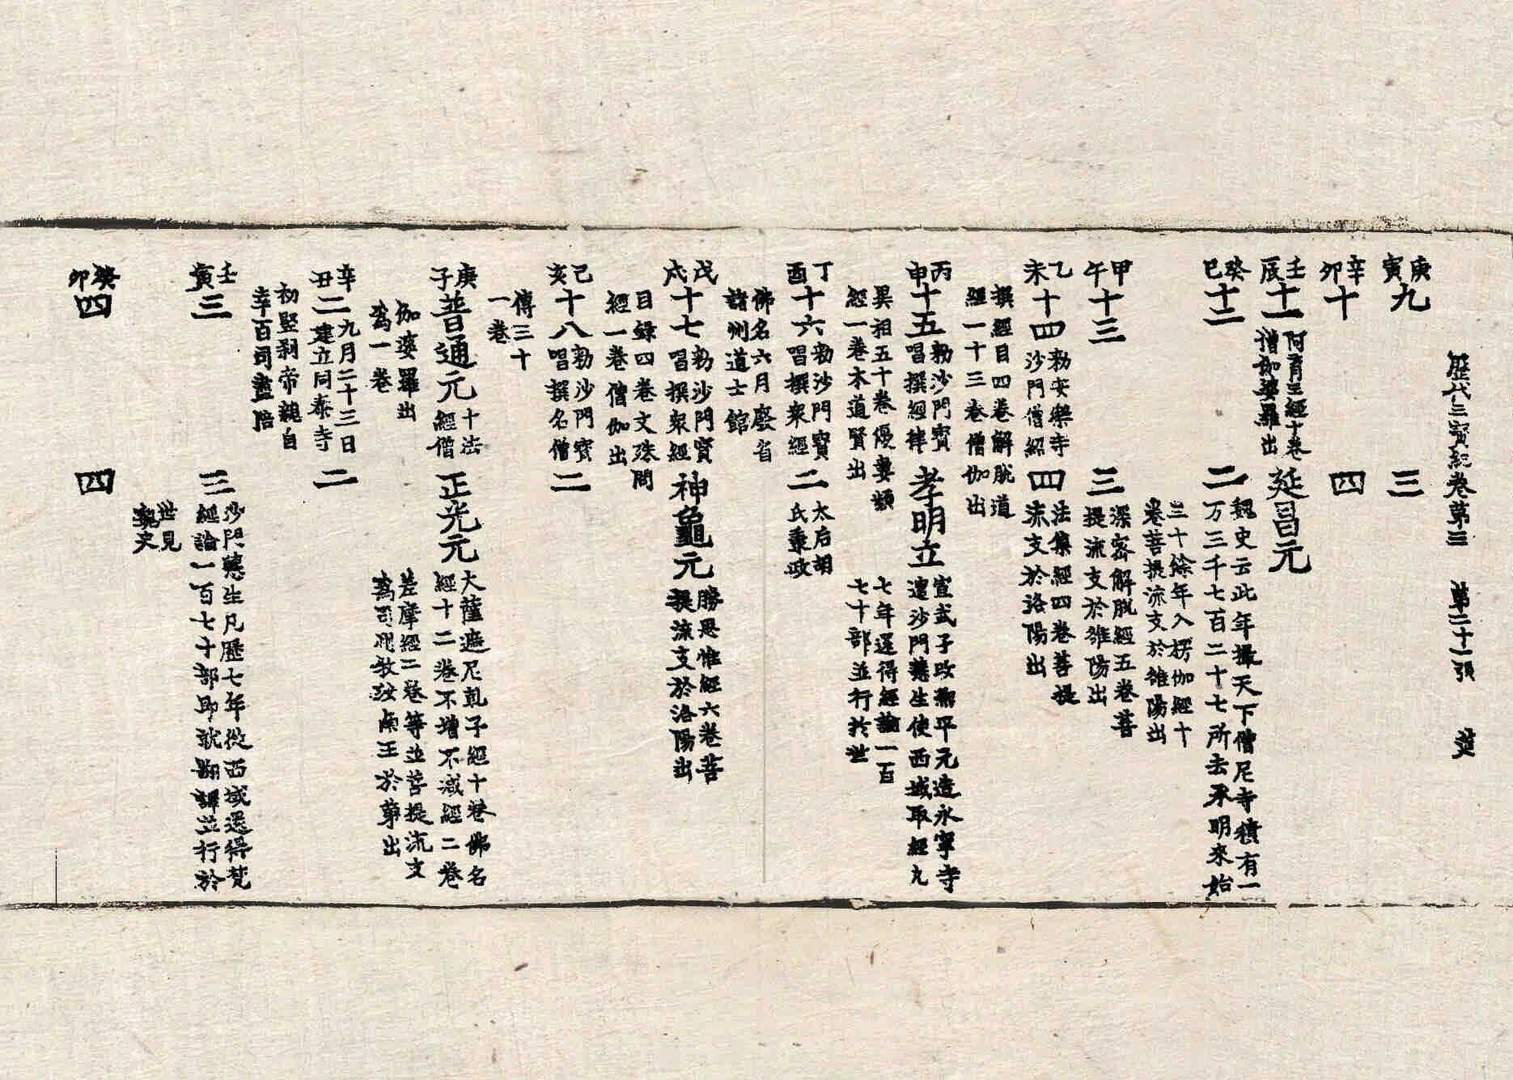 歷代三寶紀卷第三 第二十一張 英
庚寅
九
三
辛卯
十
四
壬辰
十一
阿育王經十卷
僧伽婆羅出
延昌元
癸巳
十二
二
魏史云此年攝天下僧尼寺積有一
万三千七百二十七所去承明來始
三十餘年入楞伽經十
卷菩提流支於雒陽出
甲午
十三
三
深密解脫經五卷菩
提流支於雒陽出
乙未
十四
勑安樂寺
沙門僧紹
撰經目四卷解脫道
經一十三卷僧伽出
四
法集經四卷菩提
流支於洛陽出
丙申
十五
勑沙門寶
唱撰經律
異相五十卷優婁頻
經一卷木道賢出
孝明立
宣武子改熈平元造永寧寺
遣沙門慧生使西域取經凡
七年還得經論一百
七十部並行於世
丁酉
十六
勑沙門寶
唱撰衆經
佛名六月廢省
諸州道士館
二
太后胡
氏秉政
戊戌
十七
勑沙門寶
唱撰衆經
目録四卷文殊問
經一卷僧伽出
神龜元
勝思惟經六卷菩
提流支於洛陽出
己亥
十八
勑沙門寶
唱撰名僧
傳三十
一卷
二
庚子
普通元
十法
經僧
伽婆羅出
為一卷
正光元
大薩遮尼乹子經十卷佛名
經十二卷不增不减經二卷
差摩經二卷等並菩提流支
為司州牧汝南王於第出
辛丑
二
九月二十三日
建立同泰寺
初竪刹帝親自
幸百司盡陪
二
壬寅
三
三
沙門慧生凡歷七年從西域還得梵
經論一百七十部即就翻譯並行於
世見
魏史
癸卯
四
四